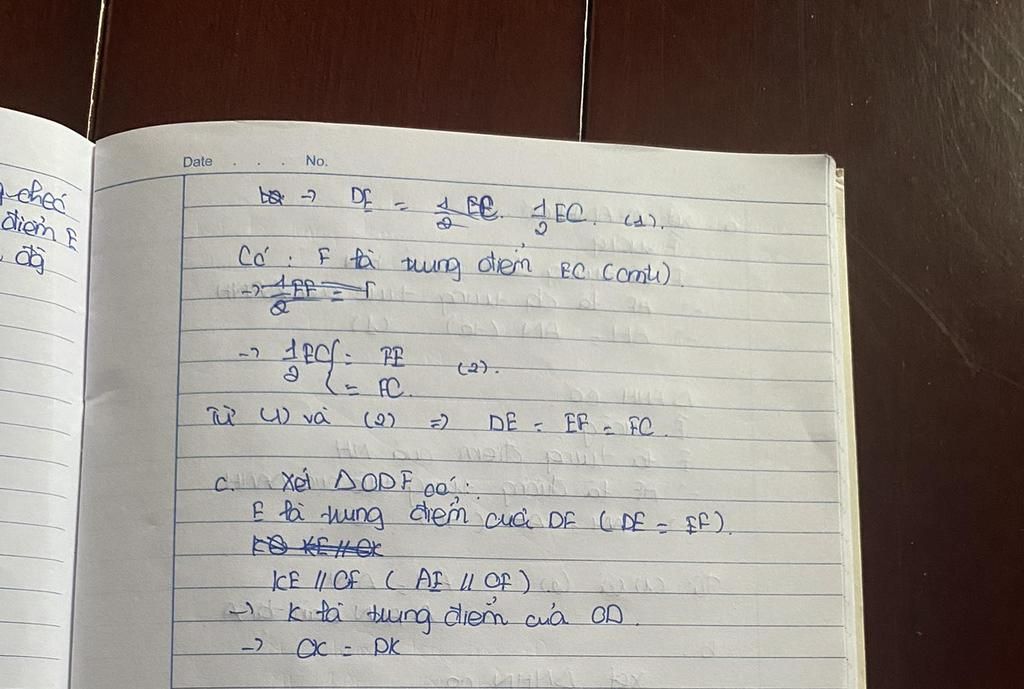 g chéo
điểm E
đg
Date . . . No.
→ DE = 1/2 EC. (1).
Có : F là trung điểm EC (cmtr).
→ 1/2 EC { = EF (2).
= FC.
Từ (1) và (2) ⇒ DE = EF = FC.
c. Xét ΔODF có:
E là trung điểm của DF (DE = EF).
KE // OF (AE // OF)
→ K là trung điểm của OD.
→ OK = DK